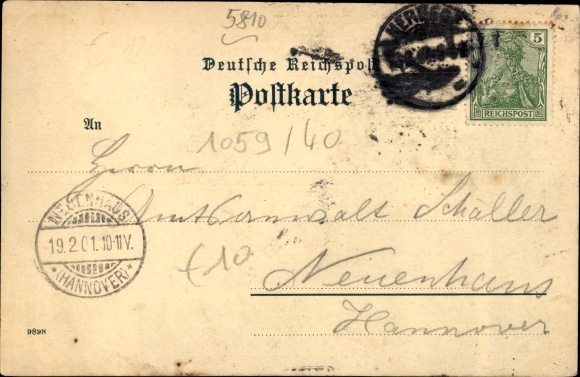 5810
5
REICHSPOST
Deutsche Reichspost
Postkarte
An
1059/40
Herrn
Amtsanwalt Schaller
NEUENHAUS
19.2.01.10-11V.
*(HANNOVER)*
€10
Neuenhaus
Hannover
9898